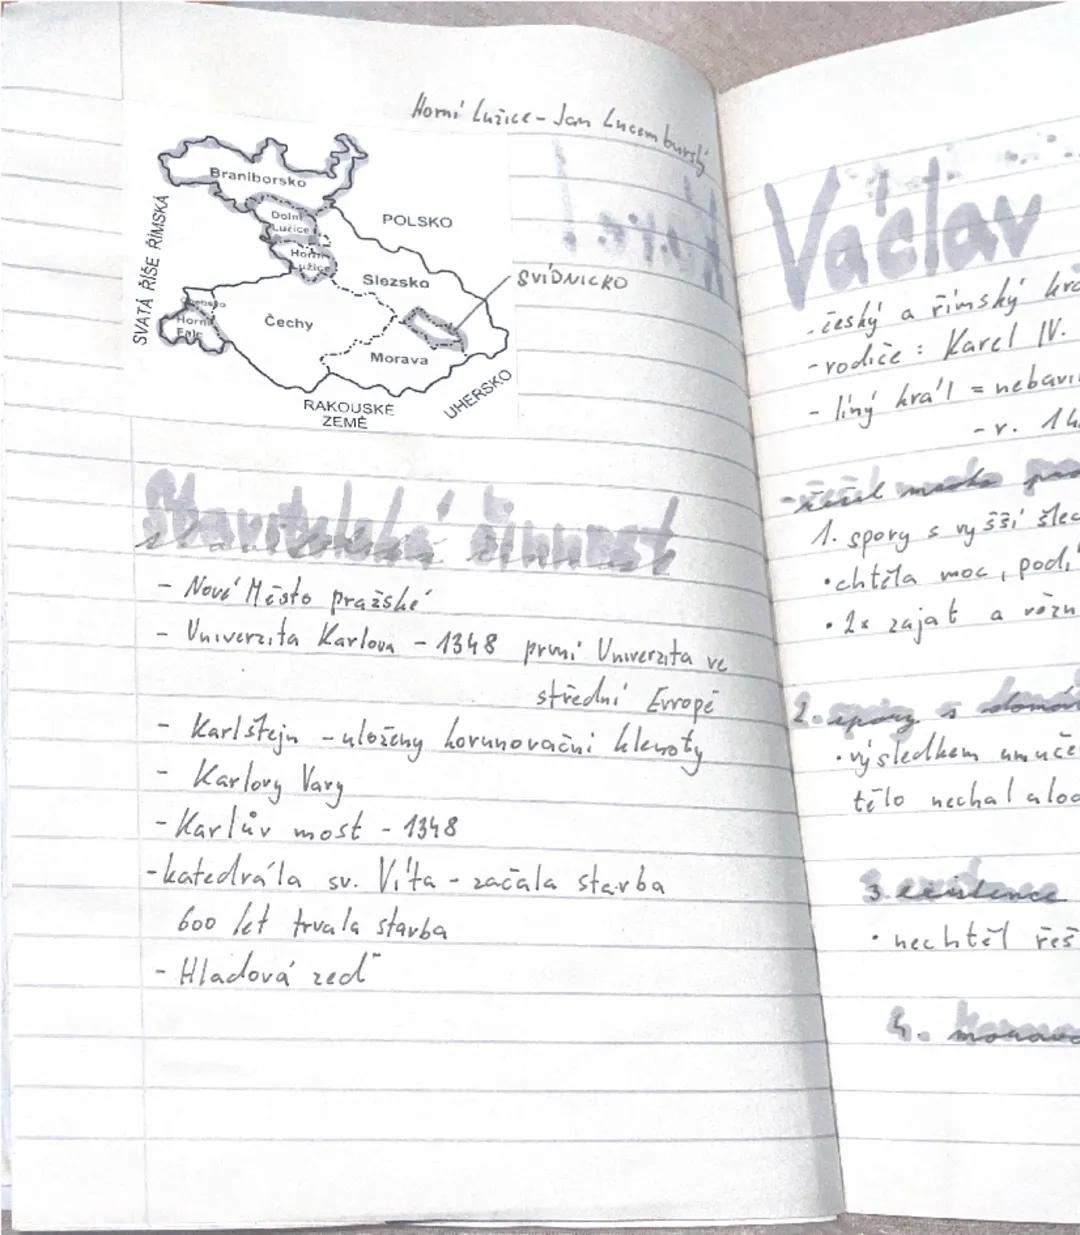 Horní Lužice - Jan Lucemburský
Braniborsko
Dolní
Lužice
Horní
Lužice
POLSKO
SVATÁ ŘÍŠE ŘÍMSKÁ
Slezsko
SVÍDNICKO
Chebsko
Horní
Falc
Čechy
Morava
UHERSKO
RAKOUSKÉ
ZEMĚ
Stavitelská činnost
- Nové Město pražské
- Univerzita Karlova - 1348 první Univerzita ve
střední Evropě
- Karlštejn - uloženy korunovační klenoty
- Karlovy Vary
- Karlův most - 1348
- katedrála sv. Víta - začala stavba
600 let trvala stavba
- Hladová zeď
Václav
- český a římský krá
- rodiče : Karel IV.
- líný král = nebavi
- r. 14
- řešil mnoho pro
1. spory s vyšší šlec
• chtěla moc, podí
• 2x zajat a vězn
2. spory s domác
• výsledkem umuče
tělo nechal aloc
3. existence
• nechtěl řeš
4.